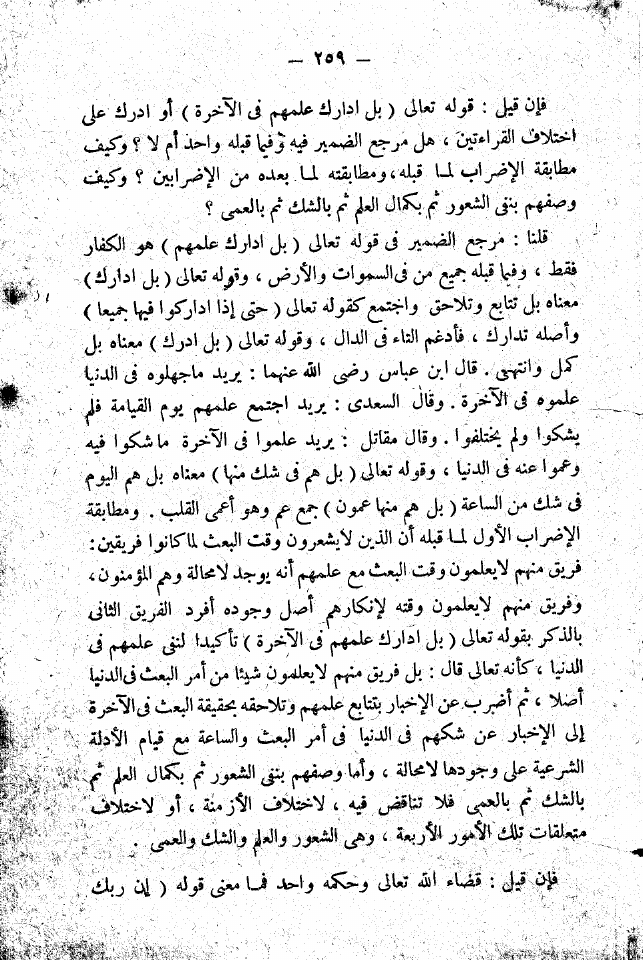 — ٢٥٩ —
فإن قيل : قوله تعالى ( بل ادارك علمهم فى الآخرة ) أو ادرك على
اختلاف القراءتين ، هل مرجع الضمير فيه وفيما قبله واحد أم لا ؟ وكيف
مطابقة الإضراب لمـا قبله ، ومطابقته لمـا بعده من الإضرابين ؟ وكيف
وصفهم بنفى الشعور ثم بكمال العلم ثم بالشك ثم بالعمى ؟
قلنا : مرجع الضمير فى قوله تعالى ( بل ادارك علمهم ) هو الكفار
فقط ، وفيما قبله جميع من فى السموات والأرض ، وقوله تعالى ( بل ادارك )
معناه بل تتابع وتلاحق واجتمع كقوله تعالى ( حتى إذا اداركوا فيها جميعا )
وأصله تدارك ، فأدغم التاء فى الدال ، وقوله تعالى ( بل ادرك ) معناه بل
كمل وانتهى . قال ابن عباس رضى الله عنهما : يريد ماجهلوه فى الدنيا
علموه فى الآخرة . وقال السعدى : يريد اجتمع علمهم يوم القيامة فلم
يشكوا ولم يختلفوا . وقال مقاتل : يريد علموا فى الآخرة ماشكوا فيه
وعموا عنه فى الدنيا ، وقوله تعالى ( بل هم فى شك منها ) معناه بل هم اليوم
فى شك من الساعة ( بل هم منها عمون ) جمع عم وهو أعمى القلب . ومطابقة
الإضراب الأول لمـا قبله أن الذين لايشعرون وقت البعث لما كانوا فريقين :
فريق منهم لايعلمون وقت البعث مع علمهم أنه يوجد لامحالة وهم المؤمنون ،
وفريق منهم لايعلمون وقته لإنكارهم أصل وجوده أفرد الفريق الثانى
بالذكر بقوله تعالى ( بل ادارك علمهم فى الآخرة ) تأكيدا لنفى علمهم فى
الدنيا ، كأنه تعالى قال : بل فريق منهم لايعلمون شيئا من أمر البعث فى الدنيا
أصلا ، ثم أضرب عن الإخبار بتتابع علمهم وتلاحقه بحقيقة البعث فى الآخرة
إلى الإخبار عن شكهم فى الدنيا فى أمر البعث والساعة مع قيام الأدلة
الشرعية على وجودها لامحالة ، وأما وصفهم بنفى الشعور ثم بكمال العلم ثم
بالشك ثم بالعمى فلا تناقض فيه ، لاختلاف الأزمنة ، أو لاختلاف
متعلقات تلك الأمور الأربعة ، وهى الشعور والعلم والشك والعمى .
فإن قيل : قضاء الله تعالى وحكمه واحد فمـا معنى قوله ( إن ربك